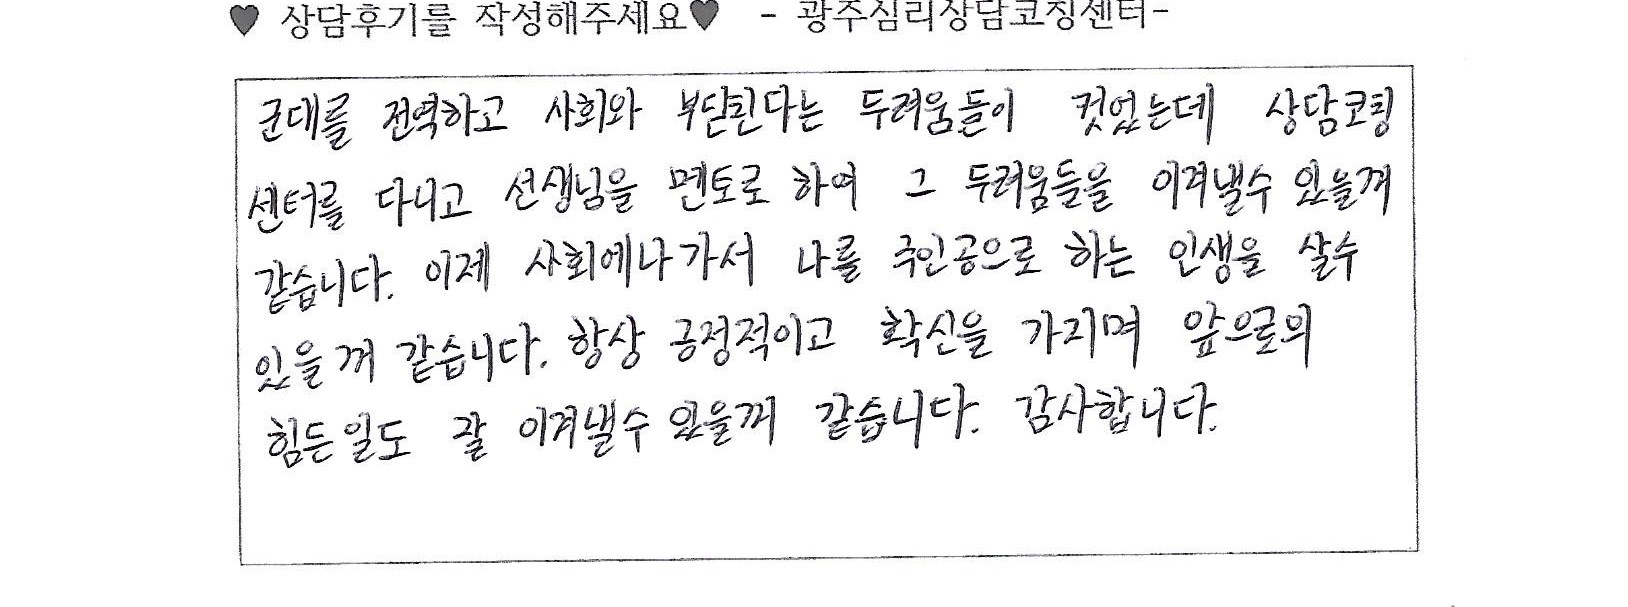 ♥ 상담후기를 작성해주세요♥ - 광주심리상담코칭센터-
군대를 전역하고 사회와 부닫힌다는 두려움들이 컷었는데 상담코칭
센터를 다니고 선생님을 멘토로 하여 그 두려움들을 이겨낼수 있을꺼
같습니다. 이제 사회에나가서 나를 주인공으로 하는 인생을 살수
있을꺼 같습니다. 항상 긍정적이고 확신을 가지며 앞으로의
힘든일도 잘 이겨낼수 있을꺼 같습니다. 감사합니다.